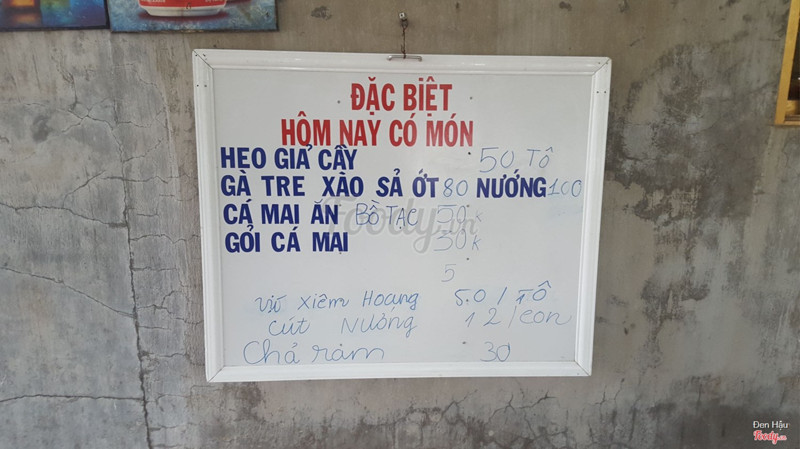 ĐẶC BIỆT
HÔM NAY CÓ MÓN
HEO GIẢ CẦY 50 TÔ
GÀ TRE XÀO SẢ ỚT 80 NƯỚNG 100
CÁ MAI ĂN BỒ TẠC 50k
GỎI CÁ MAI 50k
5
Vịt Xiêm Hoang 50/TÔ
Cút Nướng 12/con
Chả ram 30
Foody.vn
Đen Hậu
Foody.vn